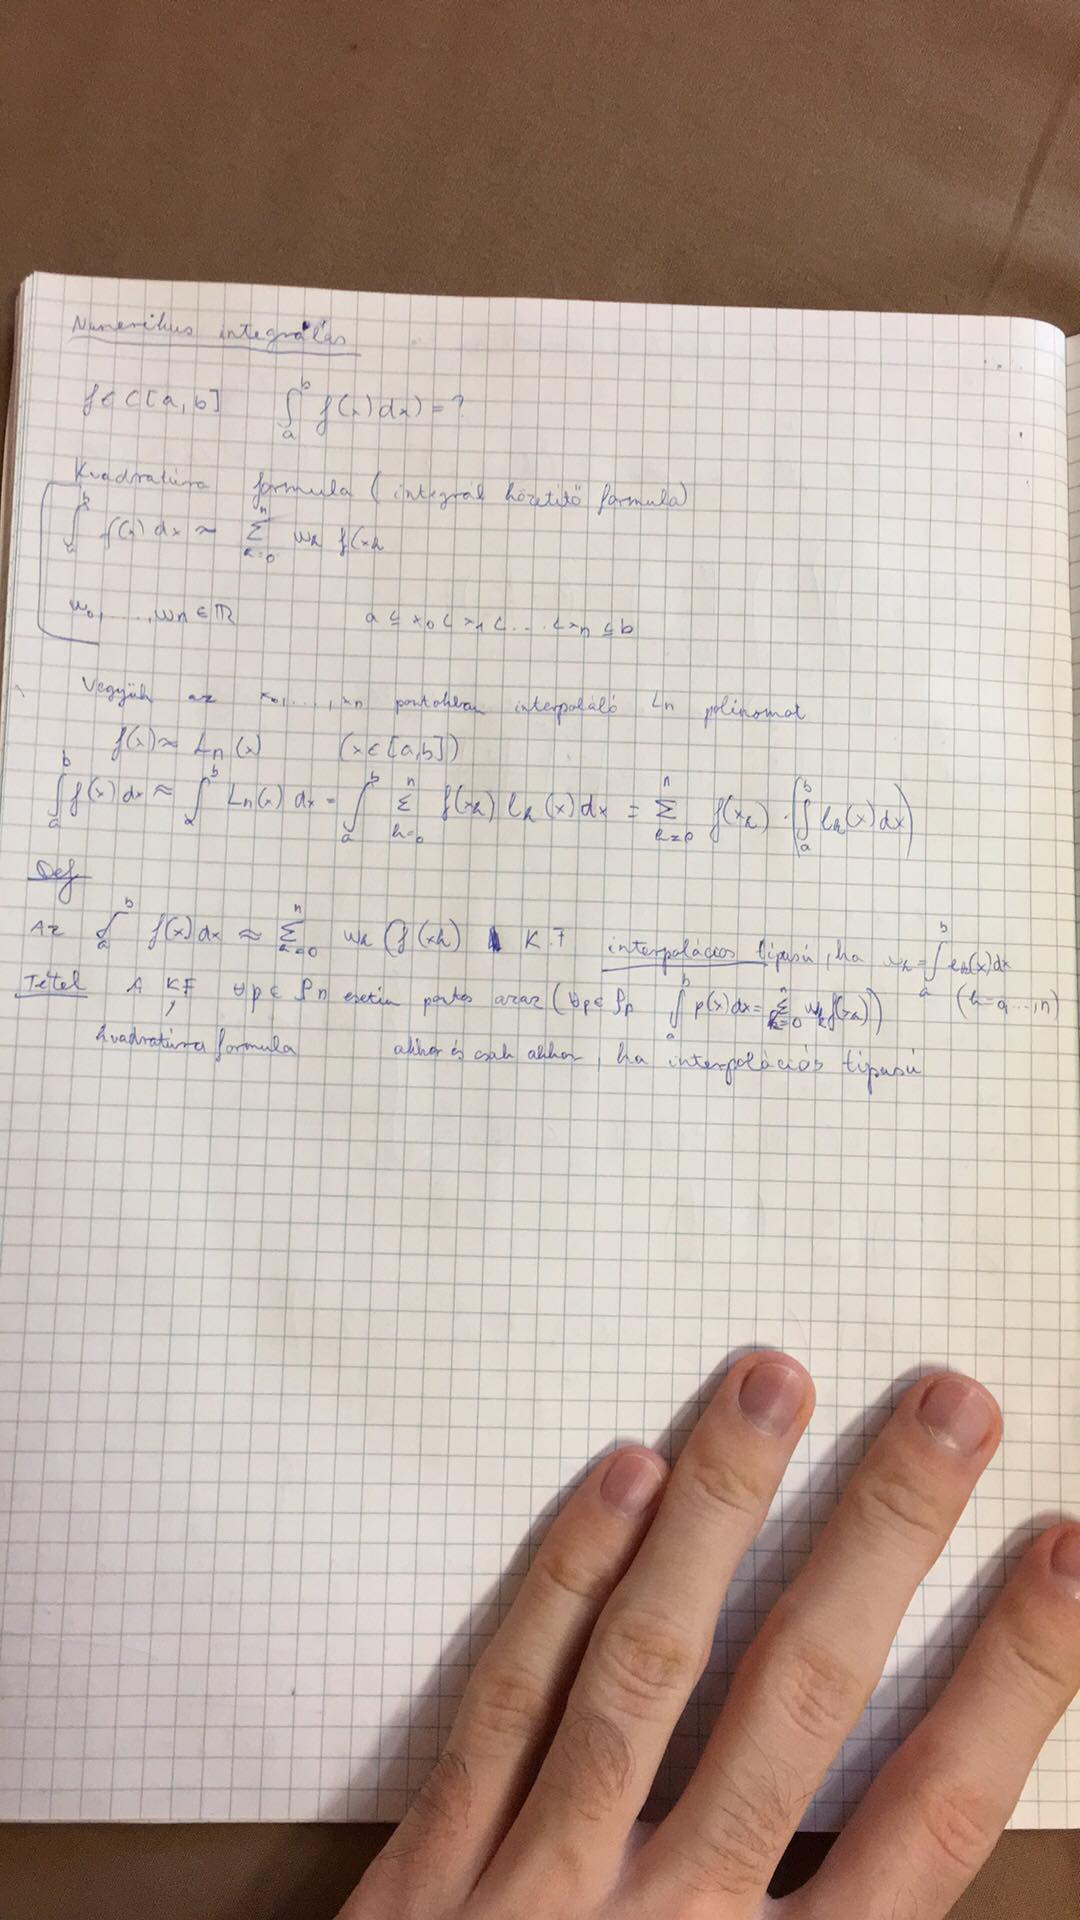 Numerikus integrálás
f ∈ C[a,b] ∫_a^b f(x)dx) = ?
Kvadratúra formula (integrál közelítő formula)
∫_a^b f(x) dx ≈ Σ_{k=0}^n w_k f(x_k
w_0, ..., w_n ∈ ℝ a ≤ x_0 < x_1 < ... < x_n ≤ b
Vegyük az x_0, ..., x_n pontokban interpoláló L_n polinomot
f(x) ≈ L_n(x) (x ∈ [a,b])
∫_a^b f(x) dx ≈ ∫_a^b L_n(x) dx = ∫_a^b Σ_{k=0}^n f(x_k) l_k(x) dx = Σ_{k=0}^n f(x_k) · (∫_a^b l_k(x) dx)
Def
Az ∫_a^b f(x) dx ≈ Σ_{k=0}^n w_k (f(x_k) K.F interpolációs típusú, ha w_k = ∫_a^b l_k(x) dx
(k = 0, ..., n)
Tétel A KF ∀p ∈ P_n esetén pontos azaz (∀p ∈ P_n ∫_a^b p(x) dx = Σ_{k=0}^n w_k f(x_k))
kvadratúra formula akkor és csak akkor, ha interpolációs típusú